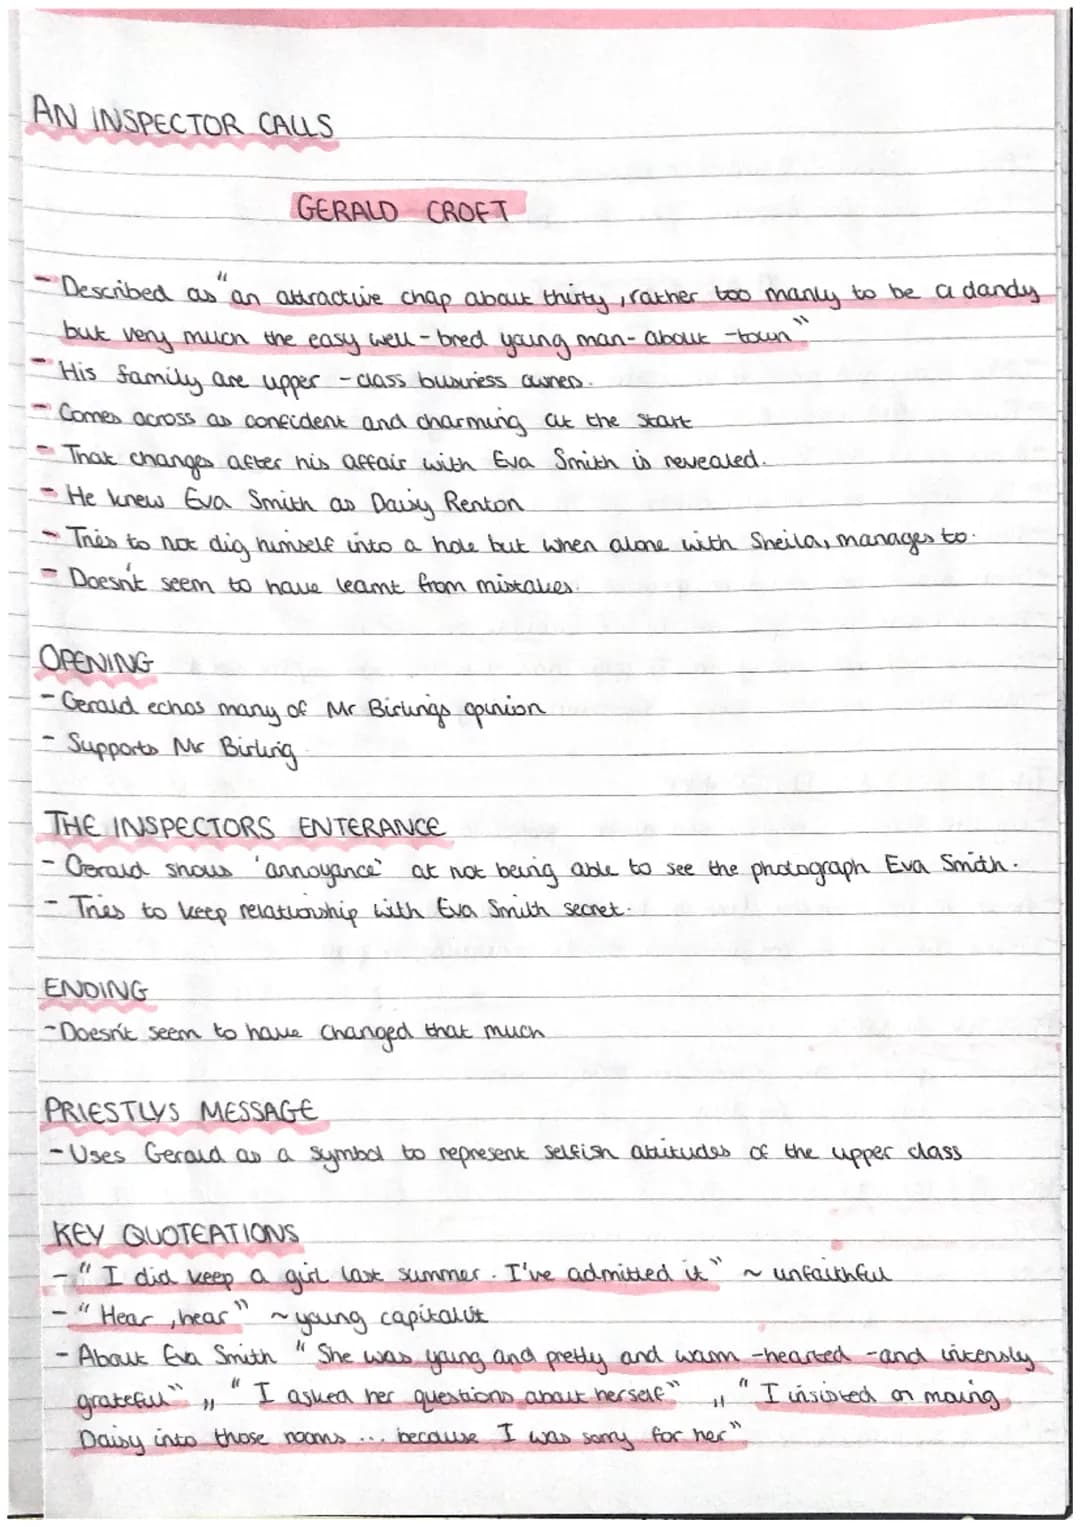 AN INSPECTOR CALLS
GERALD CROFT
- Described as "an attractive chap about thirty, rather too manly to be a dandy
but very much the easy well-bred young man-about-town"
- His family are upper-class business owners.
- Comes across as confident and charming at the start
- That changes after his affair with Eva Smith is revealed.
- He knew Eva Smith as Daisy Renton
- Tries to not dig himself into a hole but when alone with Sheila, manages to.
- Doesn't seem to have learnt from mistakes.
OPENING
- Gerald echos many of Mr Birlings opinion
- Supports Mr Birling
THE INSPECTORS ENTERANCE
- Gerald shows 'annoyance' at not being able to see the photograph Eva Smith.
- Tries to keep relationship with Eva Smith secret.
ENDING
- Doesn't seem to have changed that much
PRIESTLYS MESSAGE
- Uses Gerald as a symbol to represent selfish attitudes of the upper class
KEY QUOTEATIONS
- "I did keep a girl last summer. I've admitted it" ~ unfaithful
- "Hear, hear" ~ young capitalist
- About Eva Smith "She was young and pretty and warm-hearted - and intensly
grateful" ,, "I asked her questions about herself" ,, "I insisted on moving
Daisy into those rooms ... because I was sorry for her"